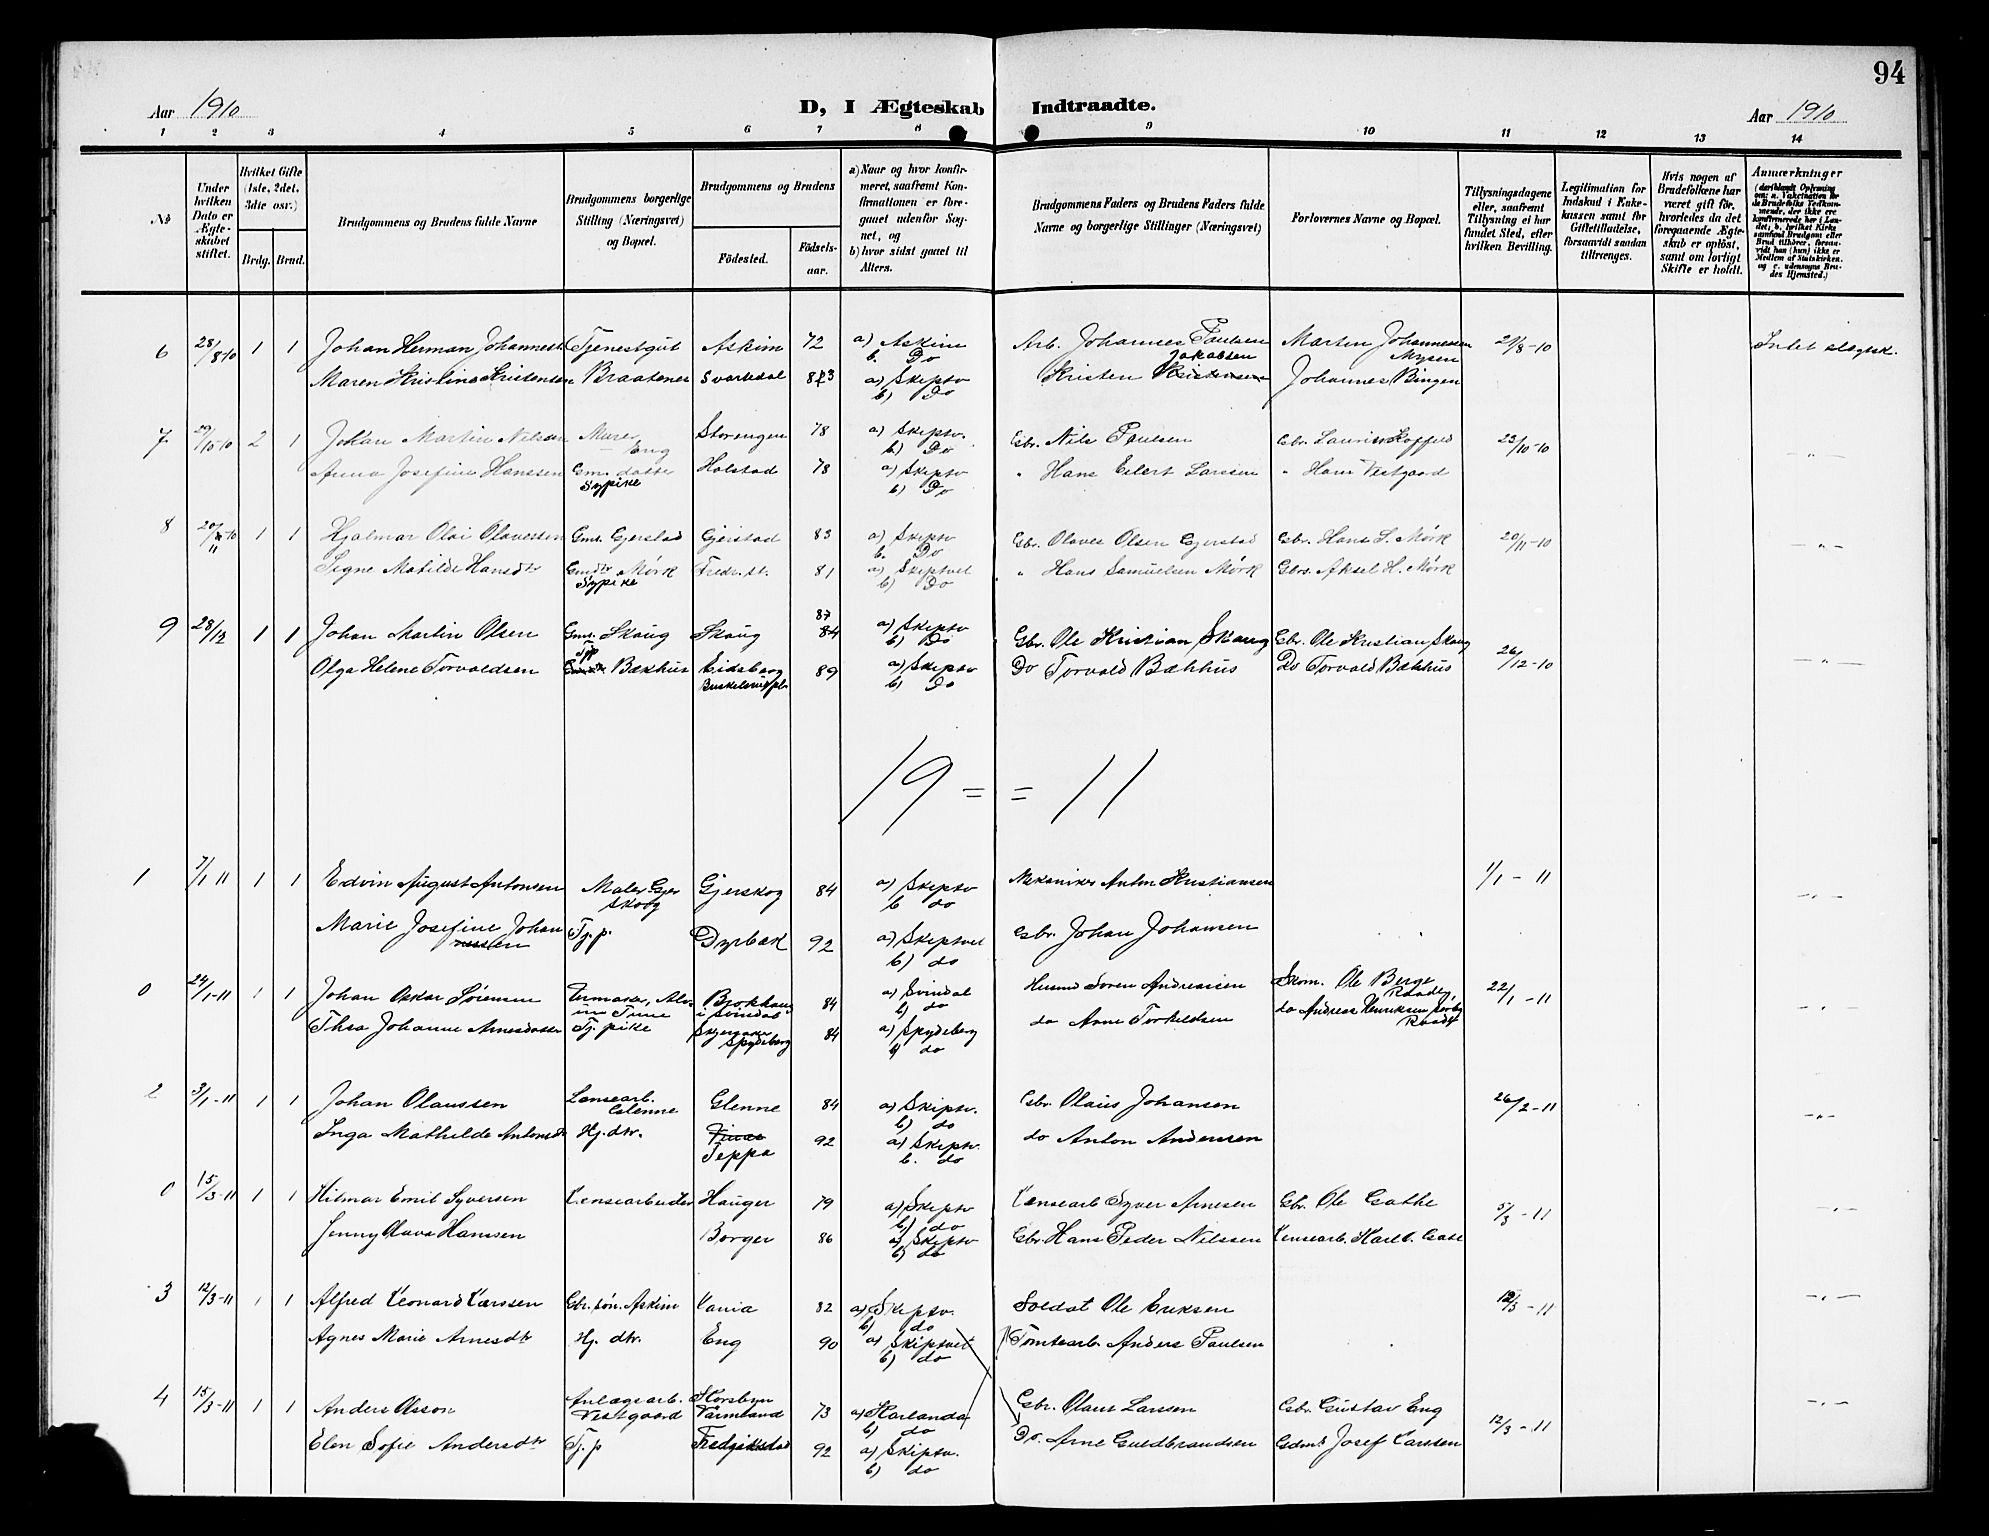 94
Aar 1910
D, I Ægteskab Indtraadte.
Aar 1910
1 2 3 4 5 6 7 8 9 10 11 12 13 14
No
Under hvilken Dato er Ægteskabet stiftet.
Hvilket Gifte (1ste, 2det, 3die osv.)
Brdg. Brud.
Brudgommens og Brudens fulde Navne
Brudgommens borgerlige Stilling (Næringsvei) og Bopæl.
Brudgommens og Brudens
Födested.
Födselsaar.
a) Naar og hvor konfirmeret, saafremt Konfirmationen er foregaaet udenfor Sognet, og
b) hvor sidst gaaet til Alters.
Brudgommens Faders og Brudens Faders fulde Navne og borgerlige Stillinger (Næringsvei)
Forlovernes Navne og Bopæl.
Tillysningsdagene eller, saafremt Tillysning ei har fundet Sted, efter hvilken Bevilling.
Legitimation for Indskud i Enkekassen samt for Giftetilladelse, forsaavidt saadan tiltrænges.
Hvis nogen af Brudefolkene har været gift för, hvorledes da det foregaaende Ægteskab er oplöst, samt om lovligt Skifte er holdt.
Anmærkninger
6 28/8 10 1 1 Johan Herman Johannes Tjenestgut Askim 72 a) Askim Arb. Johannes Paulsen Martin Johannessen 21/8-10 Intet slegtsk.
b. Do Jakobsen Mysen
Maren Kristina Kristensen Braatenes Svartdal 73 a) Skiptv Kristen Johannes Bingen
b) Do
7 29/10-10 2 1 Johan Martin Nilsen Murer Storengen 78 a) Skiptv. Gbr. Nils Paulsen Gbr. Laurits 23/10-10 - " -
Eng b) Do
Anna Josefine Hanssen Gm. datte Holstad 78 a) Skiptv " Hans Eilert Larssen " Hans Vestgaard
Sypike b) Do
8 20/11 10 1 1 Hjalmar Olai Olavessen Gms. Gjerstad Gjerstad 83 a) Skiptv Gbr. Olaves Olsen Gjerstad Gbr. Hans S. Mørk 20/11-10 - " -
b. Do
Signe Matilde Hansdtr Gmdtr Mørk Fredr.st. 81 a) Skiptvet " Hans Samuelsen Mørk Gbrs. Aksel H. Mørk
Sypike b) Do
9 28/12 1 1 Johan Martin Olsen Gms. Skaug Skaug 87 84 a) Skiptv Gbr. Ole Kristian Skaug Gbr. Ole Kristian Skaug 26/12-10 - " -
b) Do
Olga Helene Torvaldsen Bækhus Eidsborg 89 a) Skiptv Do Torvald Bækhus Do Torvald Bækhus
b) Do
19 = = 11
1 7/1 11 1 1 Edvin August Antonsen Maler Gjer Gjerskog 84 a) Skiptv Mekaniker Anton Kristiansen 1/1-11 - " -
skoog b do
Marie Josefine Johan Tj.p. Dyrbæk 92 a) Skiptvet Gbr. Johan Johansen
nessen b) do
0 24/1-11 1 1 Johan Oskar Sørensen 84 a) Svindal Husmd Søren Andreassen Skom. Ole Berge 22/1-11 - " -
i Svindal b) do Raadey
Thea Johanne Arnesdatter Tj. pike 84 a) Spydeberg do Arne Torkeldsen do Andreas Henriksen
Spydeberg b) do
2 3/1-11 1 1 Johan Olaussen Lensearb. Glenne 84 a) Skiptv. Gbr. Olaus Johansen 26/2-11 - " -
Glenne b) do
Inga Mathilde Antonsdtr Hj. dtr. 92 a) Skiptv. do Anton Andersen
Teppa b. do
0 15/3-11 1 1 Hilmar Emil Syversen Lensearbeider Hauger 79 a) Skiptv Lensearb Syver Arnesen Gbr. Ole Gathe 5/3-11 - " -
b) do
Jenny Olava Hanssen Borger 86 a) Skiptv Gbr. Hans Peder Nilssen Lensearb. Karl
b) do
3 12/3-11 1 1 Alfred Leonard Larssen Gbr. søn. Askim Lania 82 a) Skiptv. Soldat Ole Eriksen 12/3-11 - " -
b) do
Agnes Marie Arnesdtr Hj. dtr. Eng 90 a) Skiptvet Tomtearb. Anders Paulsen
b) do
4 15/3-11 1 1 Anders Olsson Anlægsarb. 73 a) Gbr. Olaus Larssen Gbr. Gustav Eng 12/3-11 - " -
Vestgaard Värmland b) do
Elen Sofie Andersdtr Tj.p Fredrikstad 92 a) Skiptv. Do. Arne Guldbrandsen Gdms Josef Larssen
b) do